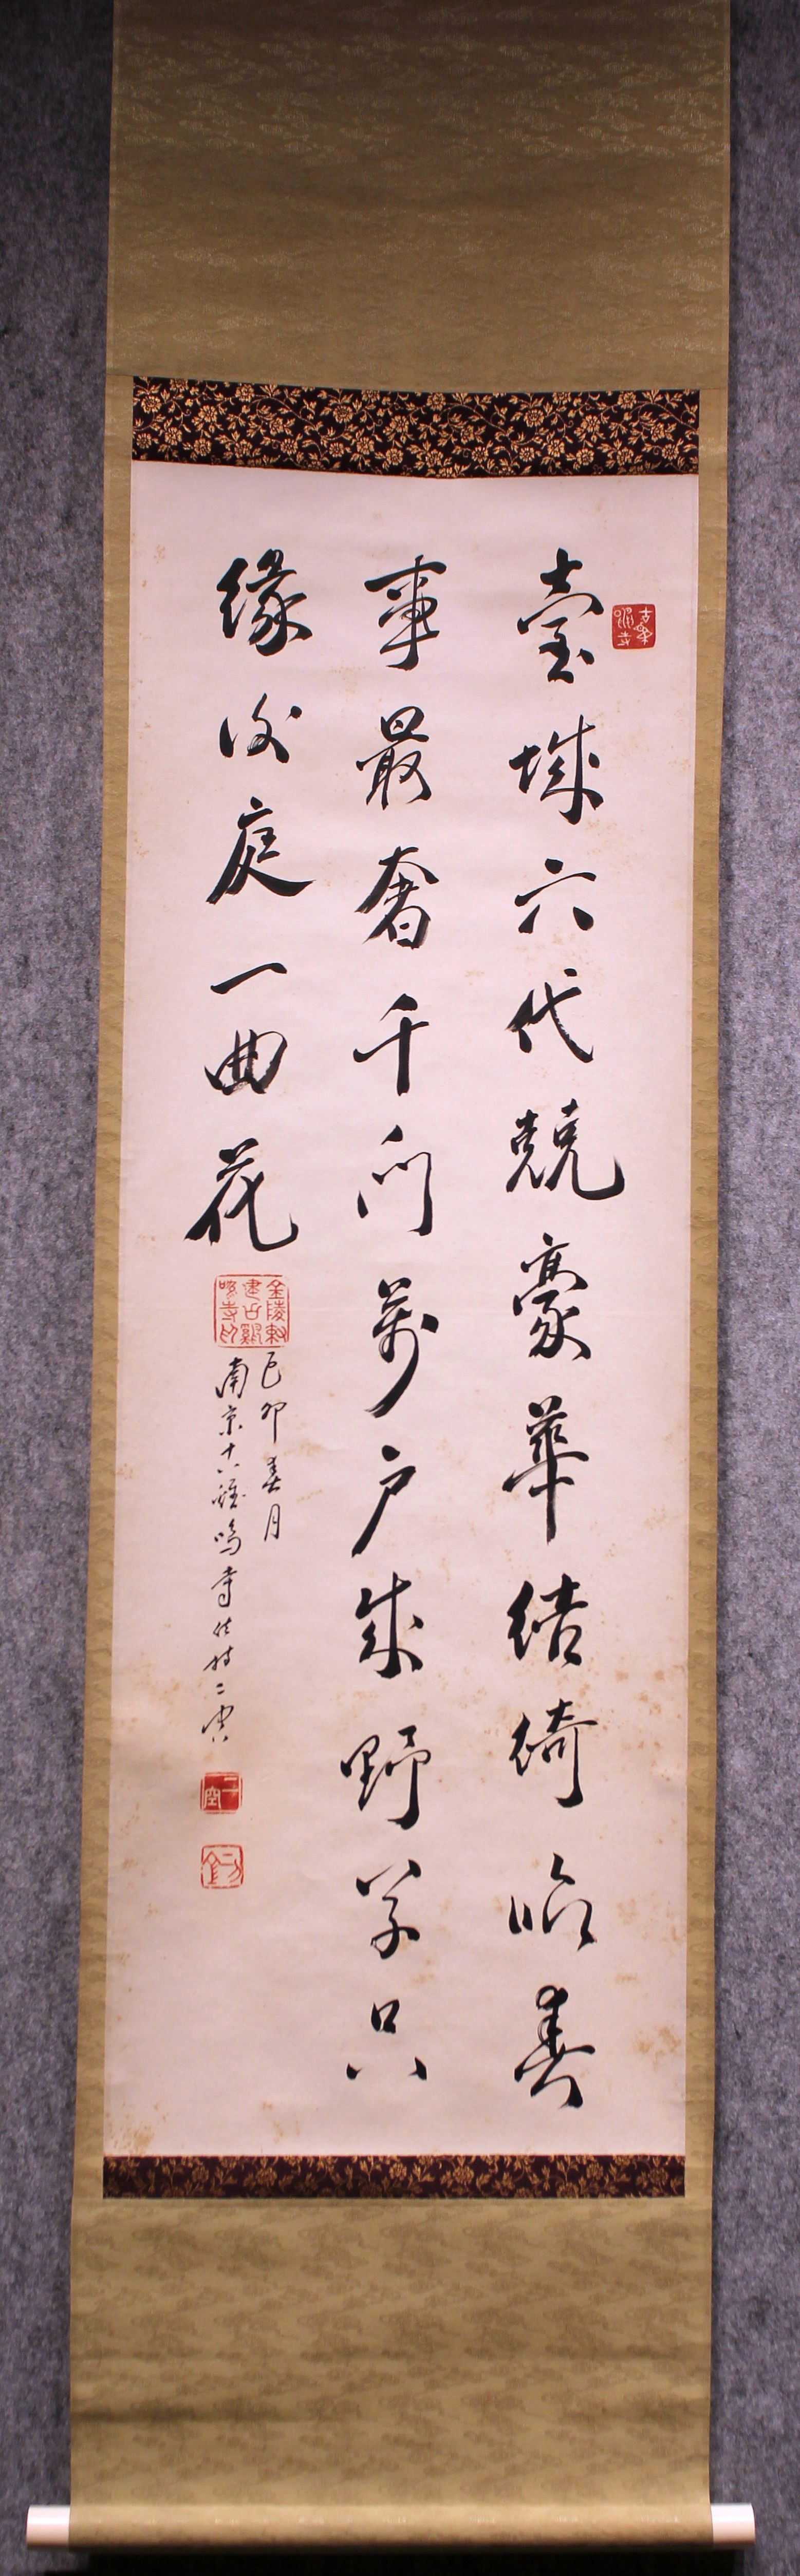 臺城六代競豪華結綺臨春
事最奢千門萬户成野草只
緣後庭一曲花
己卯春月
南京古雞鳴寺住持二空
金陵敕建古雞鳴寺印
二空